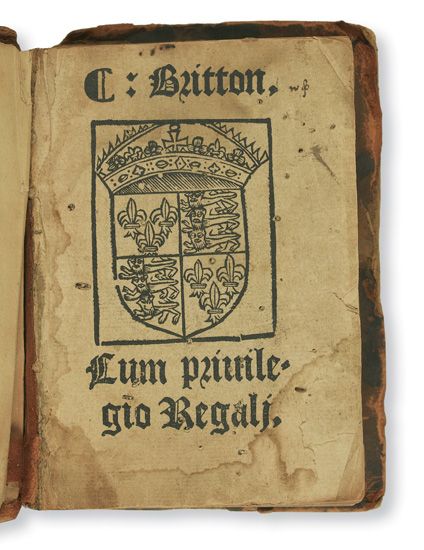 ⁋ : Britton.
Cum priuile-
gio Regalj.